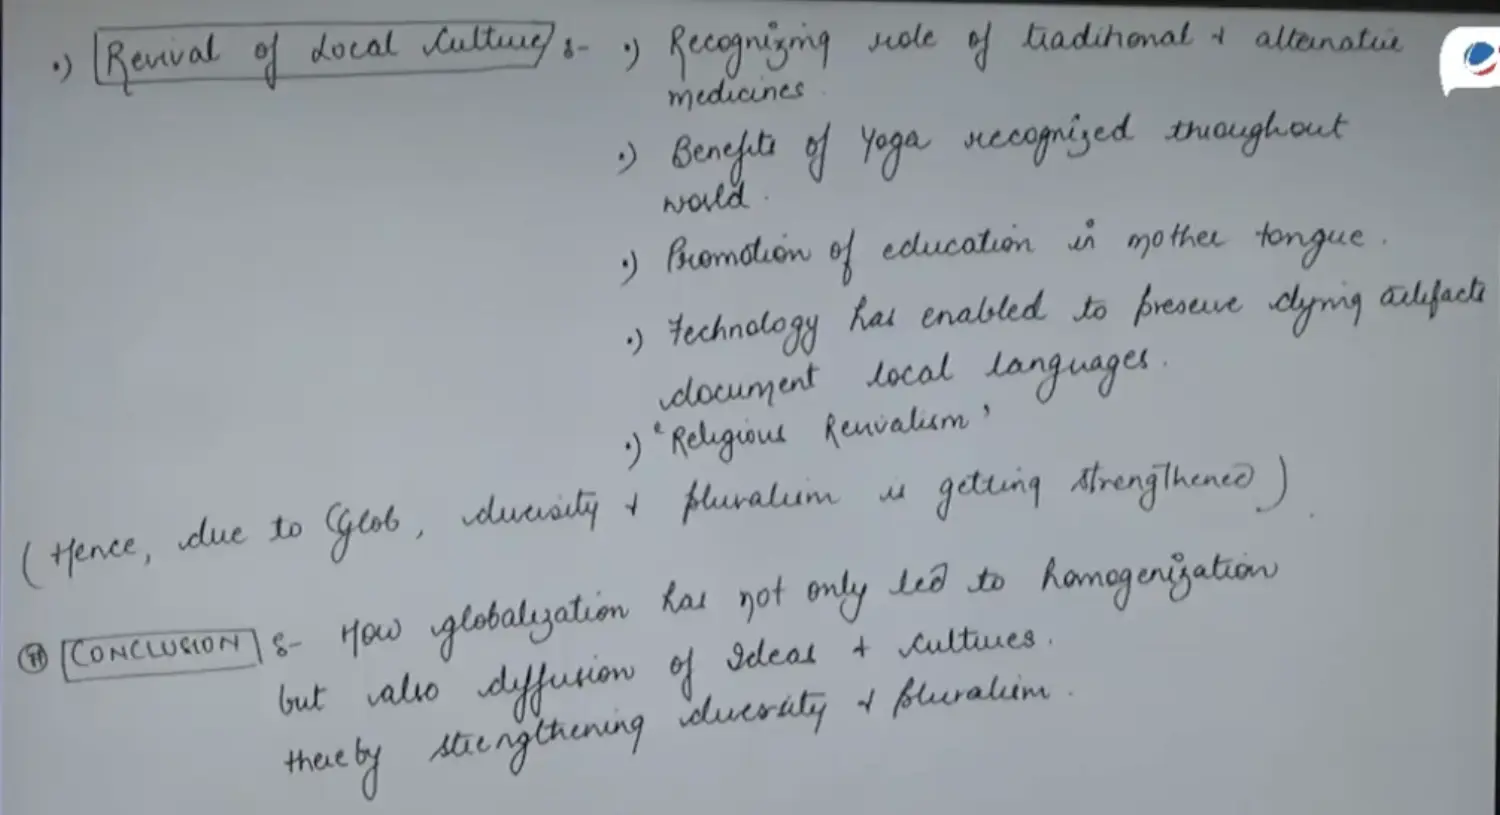 •) Revival of Local Culture :- •) Recognizing role of traditional & alternative
medicines.
•) Benefits of Yoga recognized throughout
world.
•) Promotion of education in mother tongue.
•) Technology has enabled to preserve dying artifacts
document local languages.
•) 'Religious Revivalism'
(Hence, due to Glob, diversity & pluralism is getting strengthened)
CONCLUSION :- How globalization has not only led to homogenization
but also diffusion of Ideas + cultures.
thereby strengthening diversity & pluralism.